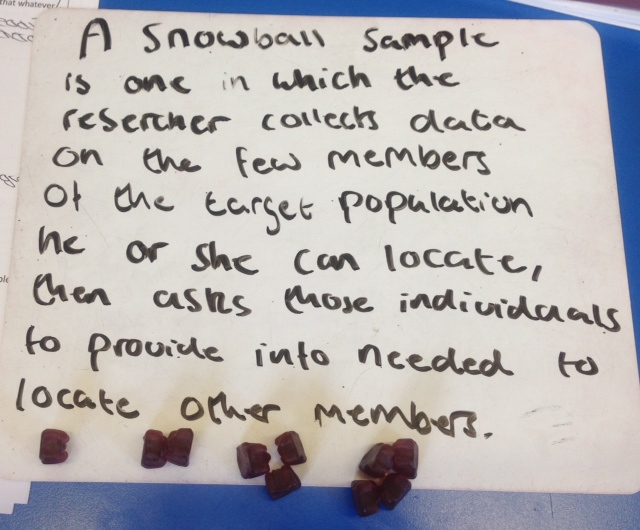 that whatever
A Snowball Sample
is one in which the
resercher collects data
on the few members
of the target population
he or she can locate,
then asks those individuals
to provide info needed to
locate other members.